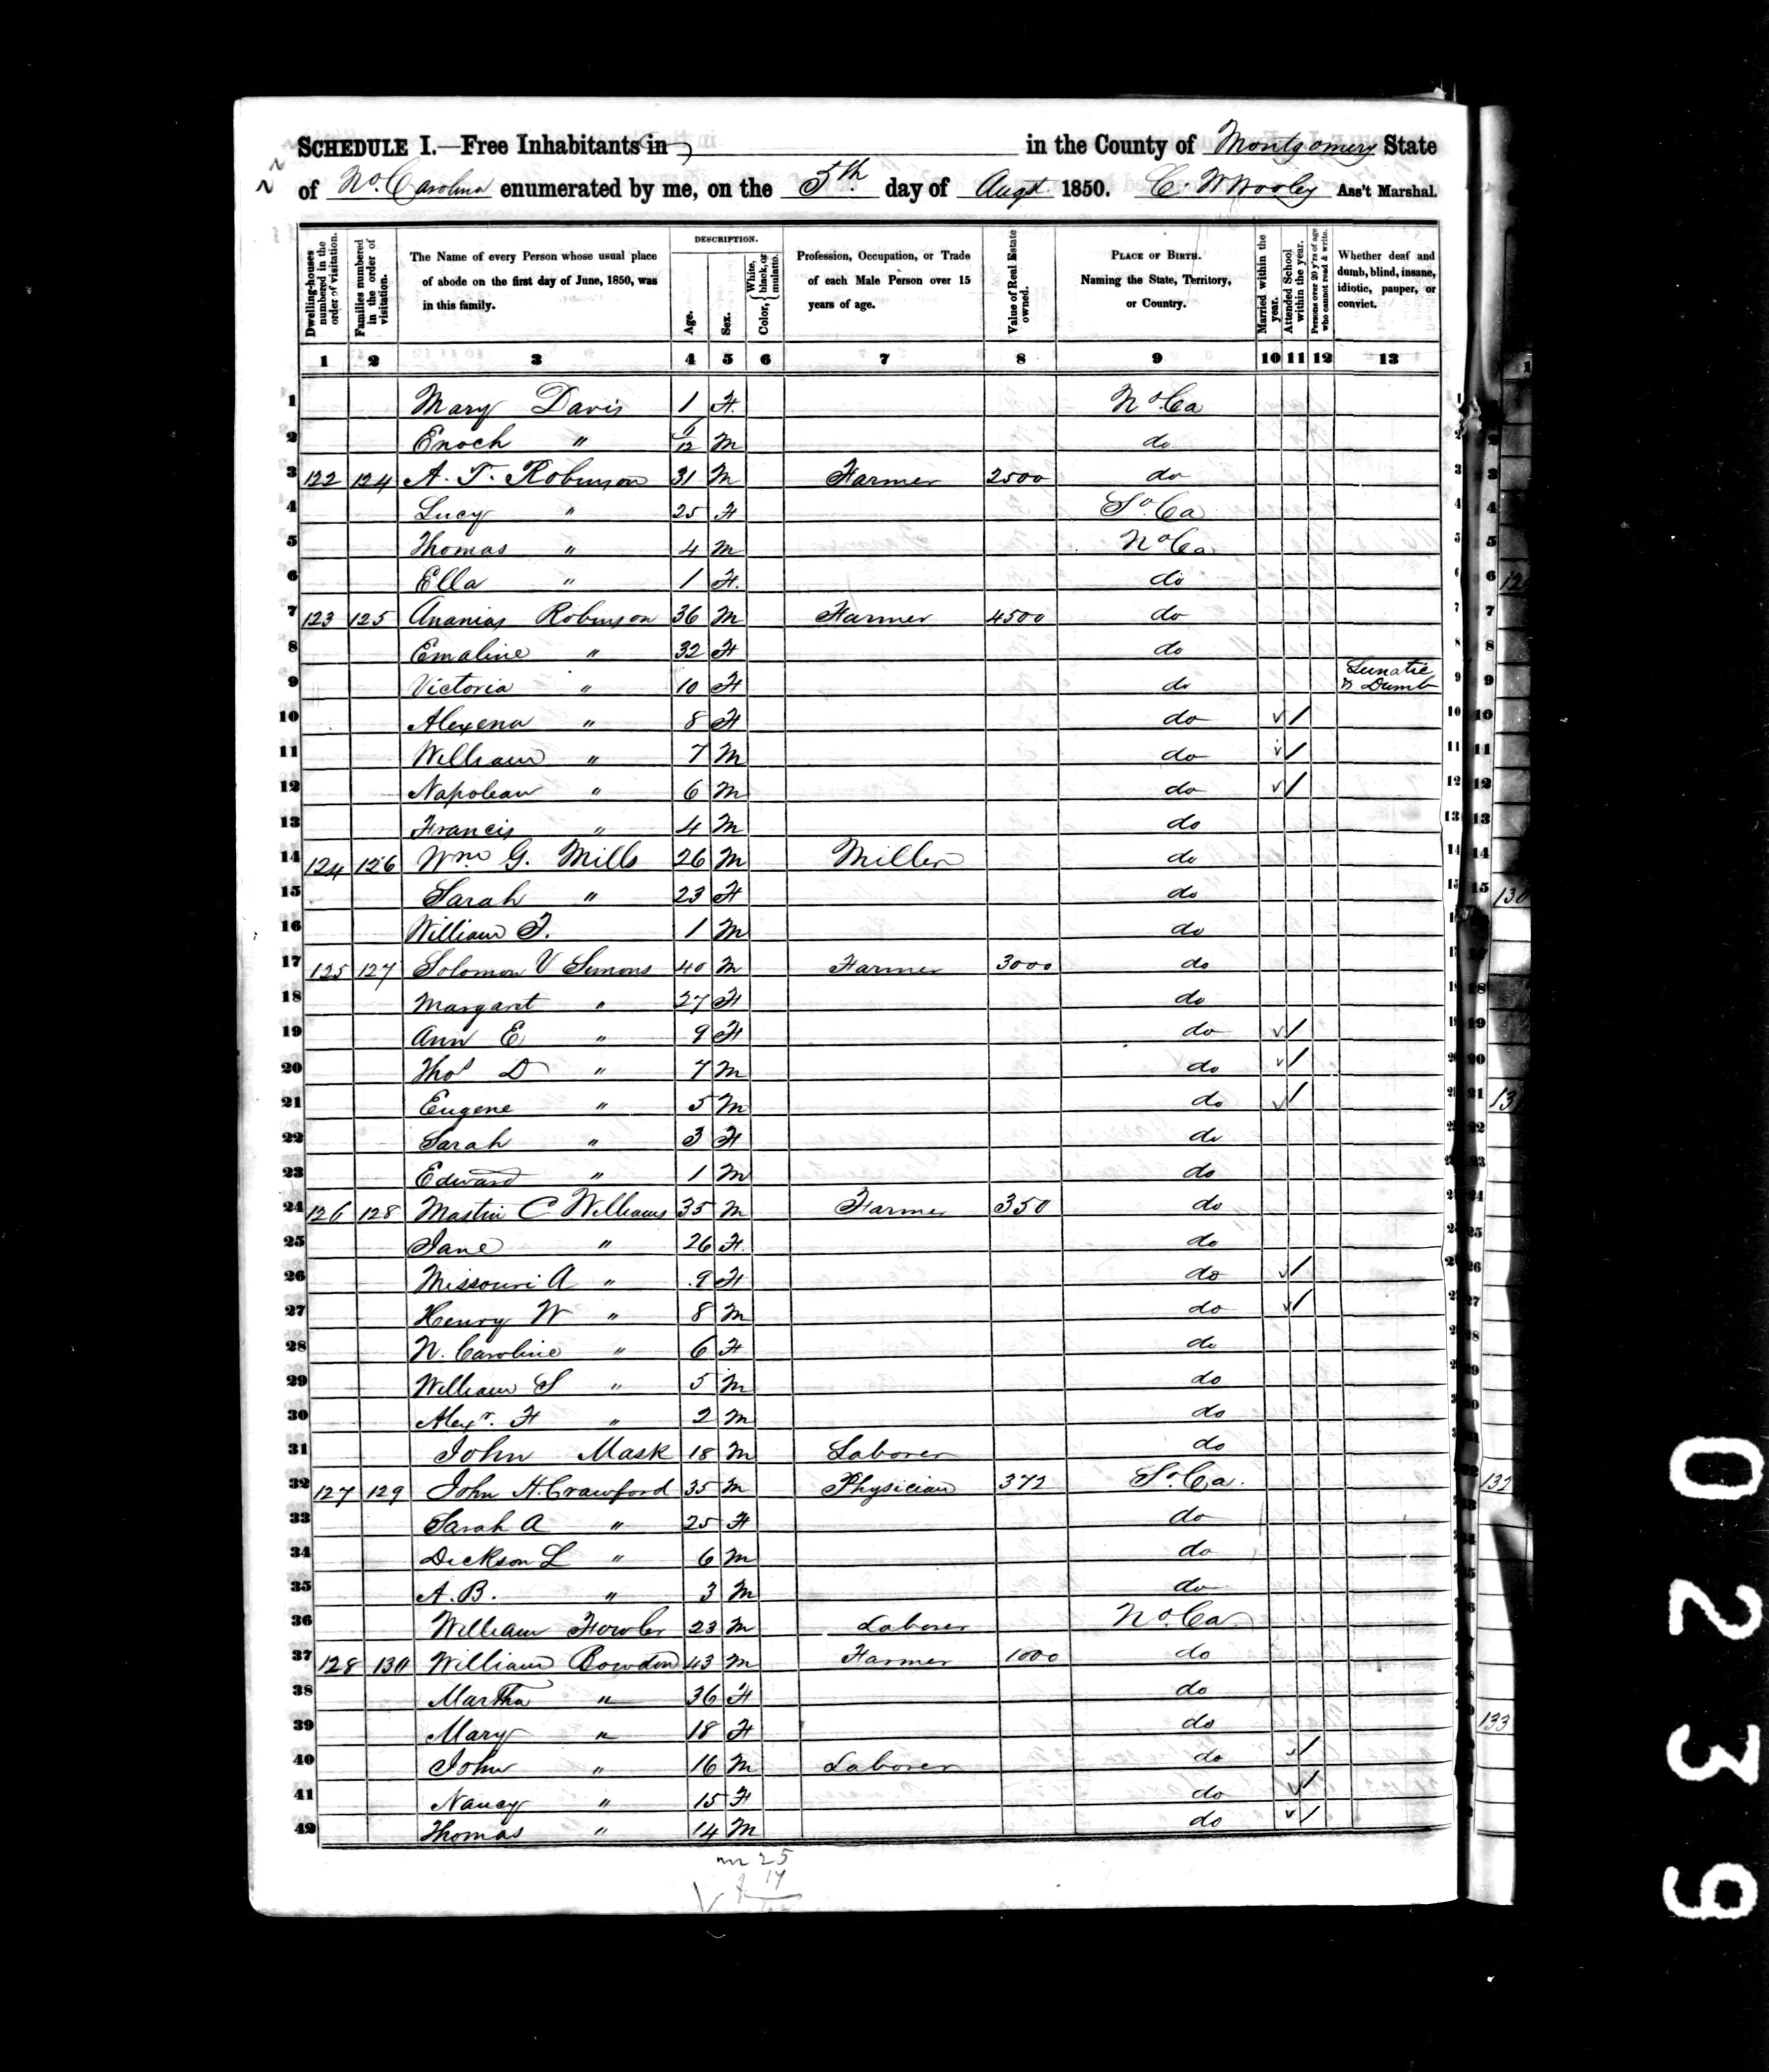 SCHEDULE I.—Free Inhabitants in in the County of Montgomery State
of No. Carolina enumerated by me, on the 5th day of Augst 1850. C. W Wooley Ass't Marshal.
Dwelling-houses numbered in the order of visitation.
Families numbered in the order of visitation.
The Name of every Person whose usual place of abode on the first day of June, 1850, was in this family.
DESCRIPTION.
Age.
Sex.
Color, { White, black, or mulatto.
Profession, Occupation, or Trade of each Male Person over 15 years of age.
Value of Real Estate owned.
PLACE OF BIRTH. Naming the State, Territory, or Country.
Married within the year.
Attended School within the year.
Persons over 20 y'rs of age who cannot read & write.
Whether deaf and dumb, blind, insane, idiotic, pauper, or convict.
1 2 3 4 5 6 7 8 9 10 11 12 13
1 Mary Davis 1 F. No. Ca 1
2 Enoch " /12 M do 2
3 122 124 A. T. Robinson 31 M Farmer 2500 do 3
4 Lucy " 25 F So. Ca 4
5 Thomas " 4 M No Ca 5
6 Ella " 1 F. do 6
7 123 125 Ananias Robinson 36 M Farmer 4500 do 7
8 Emaline " 32 F do 8
9 Victoria " 10 F do Lunatic & Dumb 9
10 Alexena " 8 F do √ / 10
11 William " 7 M do √ / 11
12 Napolean " 6 M do √ / 12
13 Francis " 4 M do 13
14 124 126 Wm G. Mills 26 M Miller do 14
15 Sarah " 23 F do 15
16 William F. 1 M do
17 125 127 Solomon V Simons 40 M Farmer 3000 do 17
18 Margaret " 27 F do 18
19 Ann E " 9 F do √ / 19
20 Thos D " 7 M do √ / 20
21 Eugene " 5 M do √ / 21
22 Sarah " 3 F do 22
23 Edward " 1 M do 23
24 126 128 Martin C Williams 35 M Farmer 350 do 24
25 Jane " 26 F. do 25
26 Missouri A " 9 F do √ / 26
27 Henry W " 8 M do √ / 27
28 N. Caroline " 6 F do 28
29 William S " 5 M do 29
30 Alexr. F " 2 M do 30
31 John Mask 18 M Laborer do
32 127 129 John H. Crawford 35 M Physician 372 So. Ca. 132
33 Sarah A " 25 F do
34 Dickson L " 6 M do
35 A. B. " 3 M do
36 William Fowler 23 M Laborer No. Ca
37 128 130 William Bowden 43 M Farmer 1000 do
38 Martha " 36 F do
39 Mary " 18 F do 133
40 John " 16 M Laborer do √ /
41 Nancy " 15 F do √ /
42 Thomas " 14 M do √ /
m 25
f 17
0239